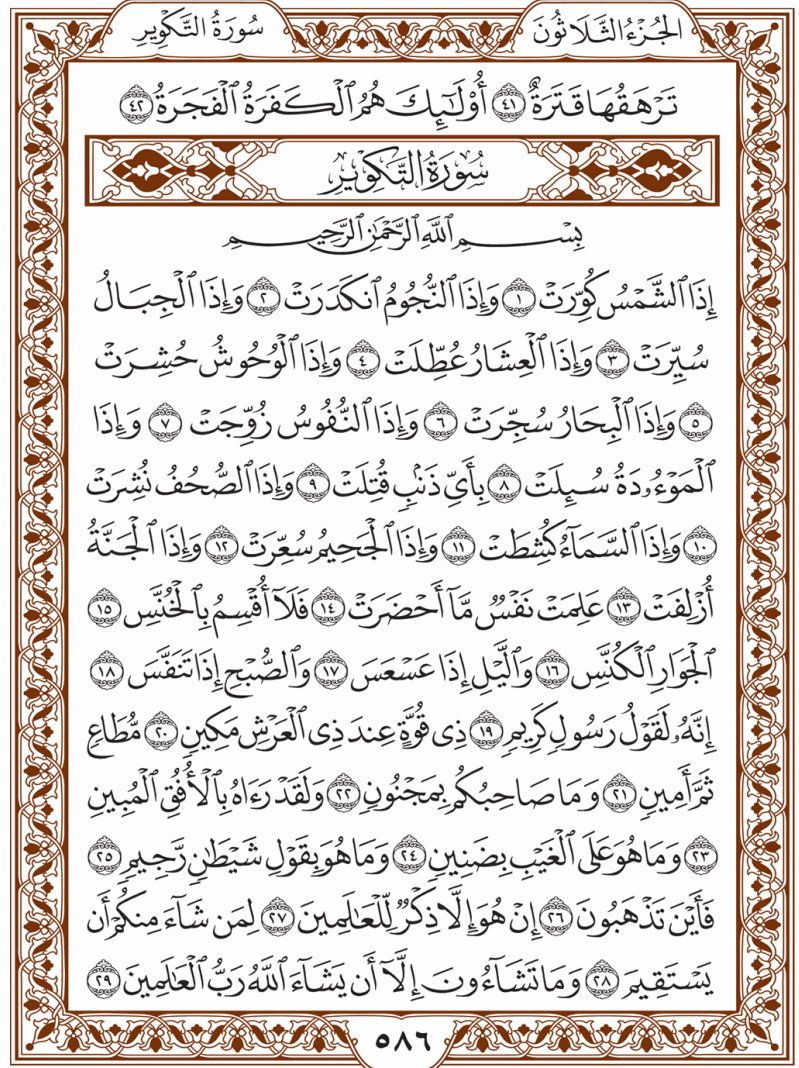 الجُزْءُ الثَّلَاثُونَ سُورَةُ التَّكْوِيرِ
تَرْهَقُهَا قَتَرَةٌ ٤١ أُوْلَٰٓئِكَ هُمُ ٱلْكَفَرَةُ ٱلْفَجَرَةُ ٤٢
سُورَةُ التَّكْوِيرِ
بِسْمِ ٱللَّهِ ٱلرَّحْمَٰنِ ٱلرَّحِيمِ
إِذَا ٱلشَّمْسُ كُوِّرَتْ ١ وَإِذَا ٱلنُّجُومُ ٱنكَدَرَتْ ٢ وَإِذَا ٱلْجِبَالُ
سُيِّرَتْ ٣ وَإِذَا ٱلْعِشَارُ عُطِّلَتْ ٤ وَإِذَا ٱلْوُحُوشُ حُشِرَتْ
٥ وَإِذَا ٱلْبِحَارُ سُجِّرَتْ ٦ وَإِذَا ٱلنُّفُوسُ زُوِّجَتْ ٧ وَإِذَا
ٱلْمَوْءُۥدَةُ سُئِلَتْ ٨ بِأَيِّ ذَنۢبٍ قُتِلَتْ ٩ وَإِذَا ٱلصُّحُفُ نُشِرَتْ
١٠ وَإِذَا ٱلسَّمَآءُ كُشِطَتْ ١١ وَإِذَا ٱلْجَحِيمُ سُعِّرَتْ ١٢ وَإِذَا ٱلْجَنَّةُ
أُزْلِفَتْ ١٣ عَلِمَتْ نَفْسٌ مَّآ أَحْضَرَتْ ١٤ فَلَآ أُقْسِمُ بِٱلْخُنَّسِ ١٥
ٱلْجَوَارِ ٱلْكُنَّسِ ١٦ وَٱلَّيْلِ إِذَا عَسْعَسَ ١٧ وَٱلصُّبْحِ إِذَا تَنَفَّسَ ١٨
إِنَّهُۥ لَقَوْلُ رَسُولٍ كَرِيمٍ ١٩ ذِي قُوَّةٍ عِندَ ذِي ٱلْعَرْشِ مَكِينٍ ٢٠ مُّطَاعٍ
ثَمَّ أَمِينٍ ٢١ وَمَا صَاحِبُكُم بِمَجْنُونٍ ٢٢ وَلَقَدْ رَءَاهُ بِٱلْأُفُقِ ٱلْمُبِينِ
٢٣ وَمَا هُوَ عَلَى ٱلْغَيْبِ بِضَنِينٍ ٢٤ وَمَا هُوَ بِقَوْلِ شَيْطَٰنٍ رَّجِيمٍ ٢٥
فَأَيْنَ تَذْهَبُونَ ٢٦ إِنْ هُوَ إِلَّا ذِكْرٌ لِّلْعَٰلَمِينَ ٢٧ لِمَن شَآءَ مِنكُمْ أَن
يَسْتَقِيمَ ٢٨ وَمَا تَشَآءُونَ إِلَّآ أَن يَشَآءَ ٱللَّهُ رَبُّ ٱلْعَٰلَمِينَ ٢٩
٥٨٦